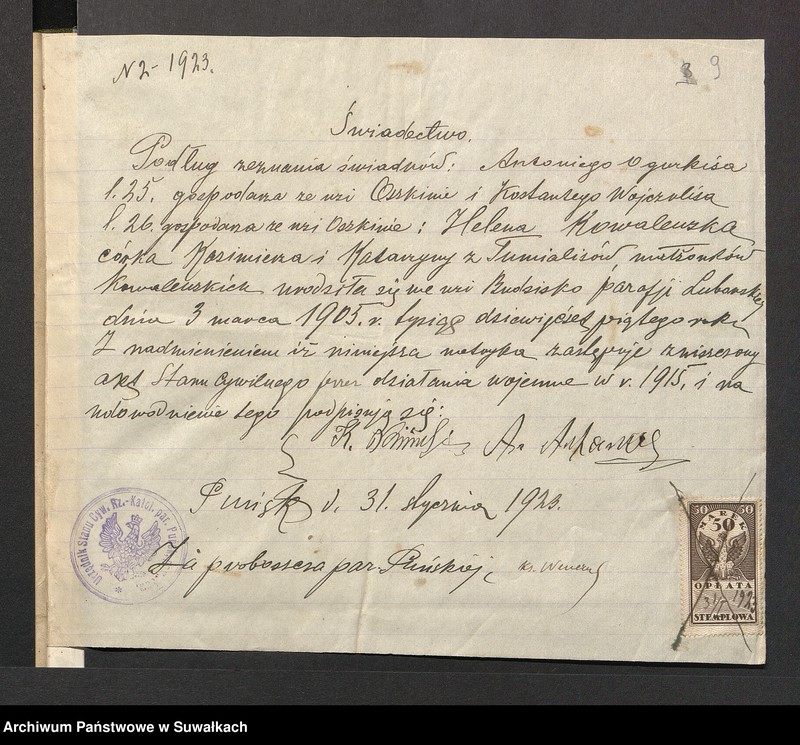 N 2 - 1923.
9
Świadectwo.
Podług zeznania świadków: Antoniego Ogurkisa
l. 25. gospodarza ze wsi Oszkinie i Kostantego Wojczulisa
l. 26. gospodarza ze wsi Oszkinie; Helena Kowalewzka
córka Kazimierza i Katarzyny z Tumialisów małżonków
Kowalewskich urodziła się we wsi Budzisko parafji Lubowskiej
dnia 3 marca 1905. r. tysiąc dziewięćset piątego roku
Z nadmienieniem iż niniejsza metryka zastępuje zniszczony
akt Stanu Cywilnego przez działania wojenne w r. 1915, i na
udowodnienie tego podpisują się:
K.
Puńsk d. 31. stycznia 1923.
Za proboszcza par. Puńskiej, ks.
Urzędnik Stanu Cyw. Rz.-Katol. par.
50 50
MAREK
50
OPŁATA
1923
STEMPLOWA
Archiwum Państwowe w Suwałkach